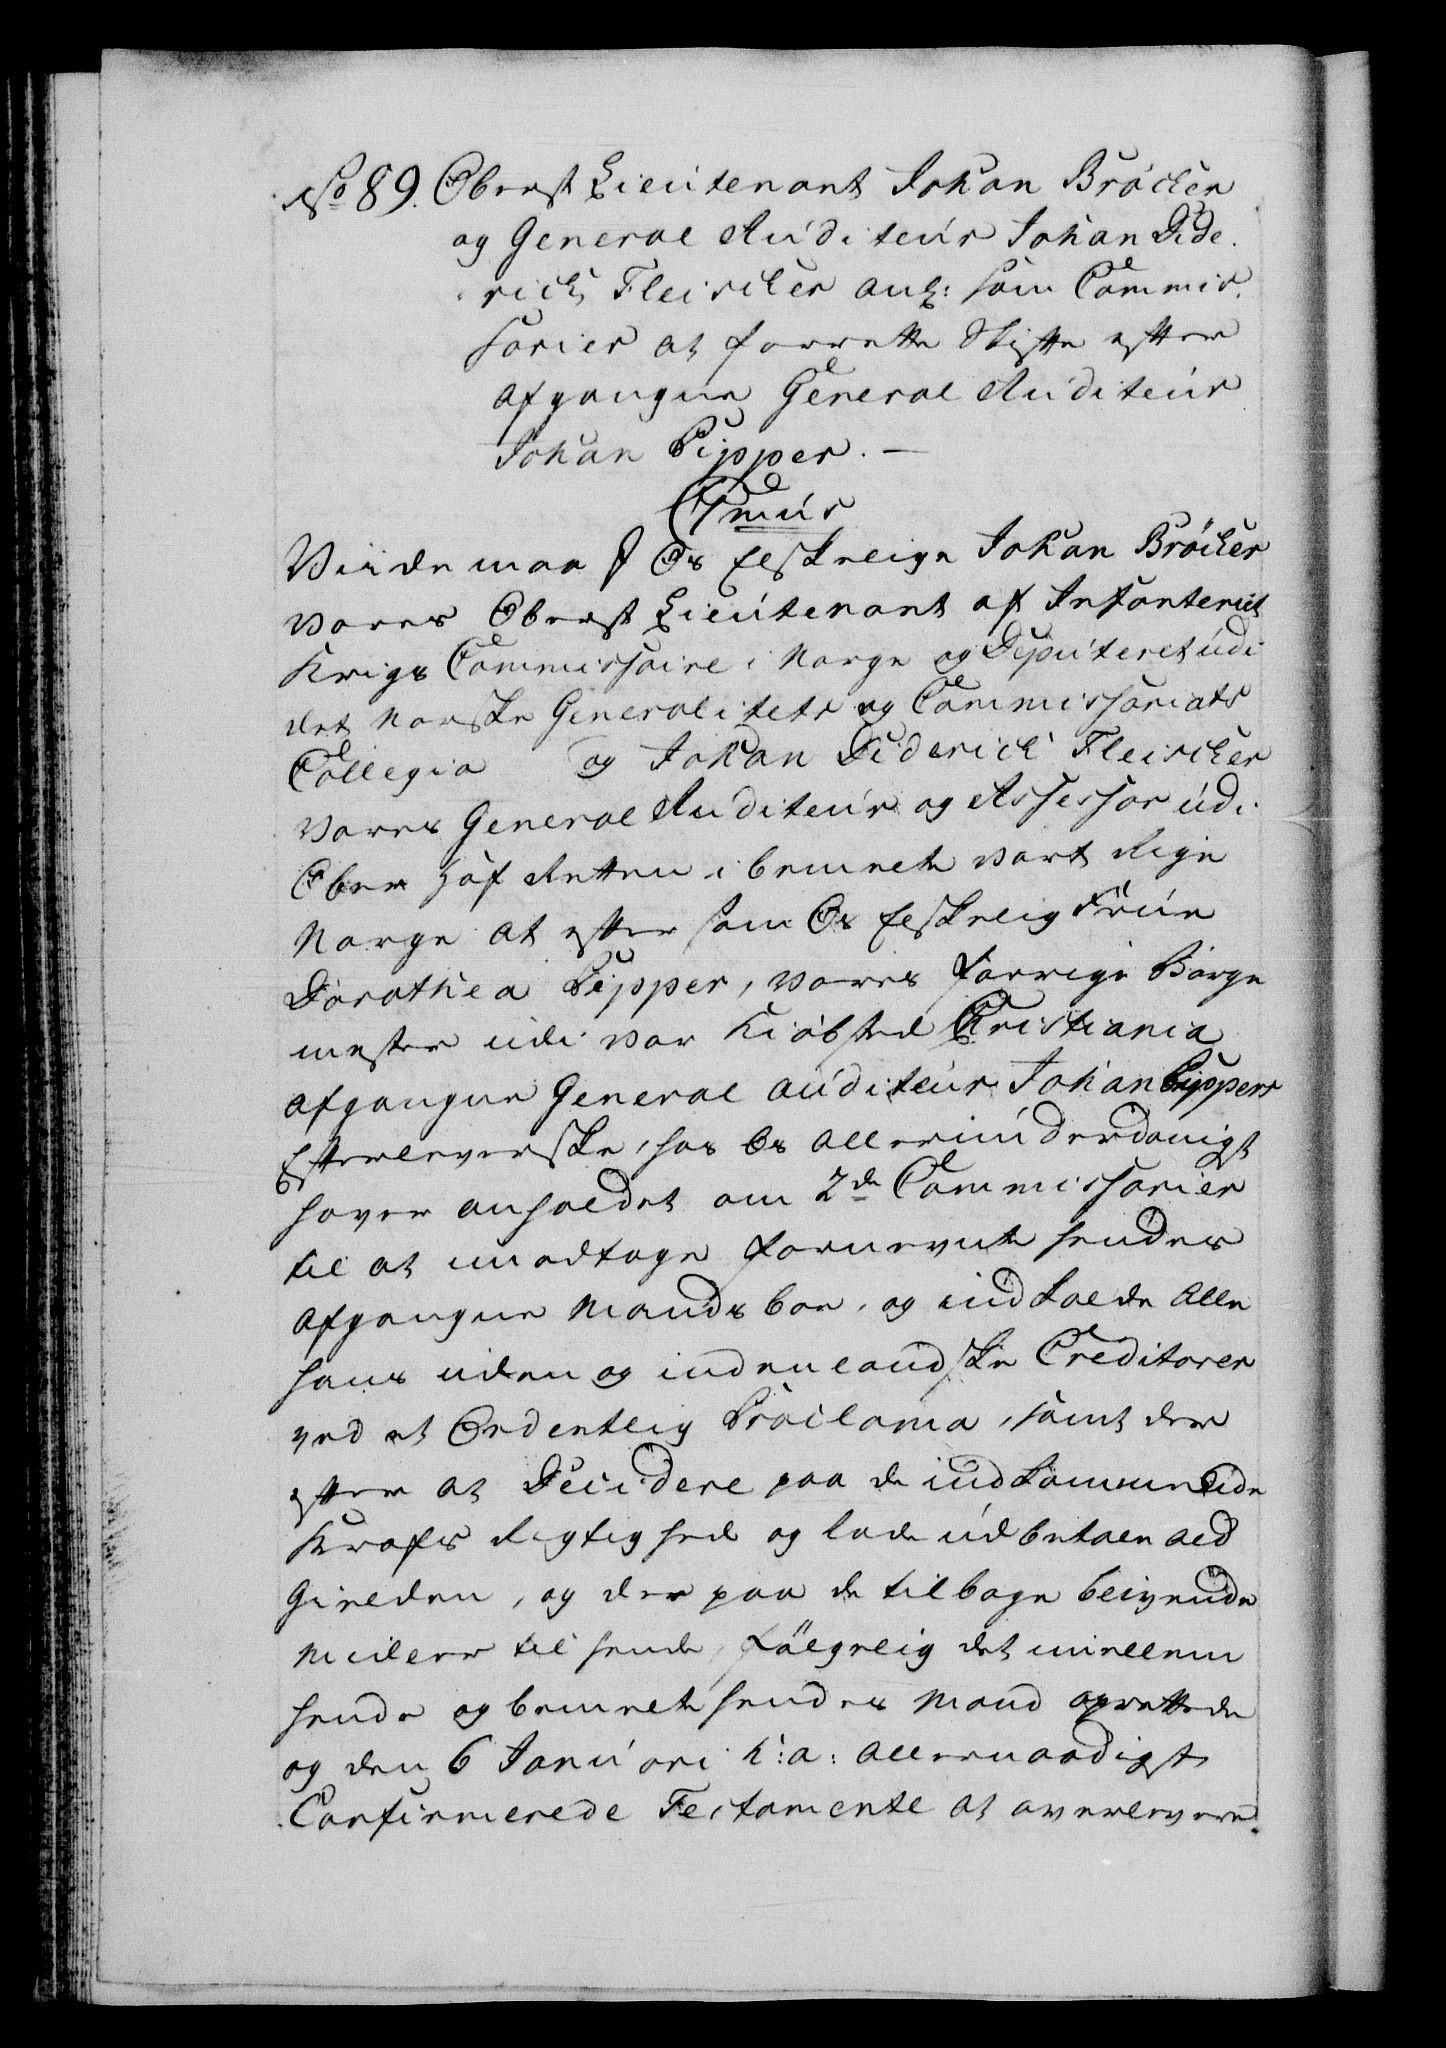 No 89. Oberst Lieutenant Johan Bröcker
og General Auditeur Johan Dide-
rich Fleischer anl: som Commis-
sarier at forrette Skifte efter
afgangne General Auditeur
Johan Pipper.—
Cmus
Viide maa I Os Elskelige Johan Bröcker
vores Oberst Lieutenant af Infanteriet
Krigs Commissaire i Norge og Deputeret udi
det Norske Generalitets og Commissariats
Collegio og Johan Diderich Fleischer
vores General Auditeur og Assessor udi
Ober Hof Retten i bemelte vort Rige
Norge at efter som Os Elskelig Frue
Dorothea Pipper, vores forrige Borge
mester udi vor Kiöbsted Christiania
afgangne General auditeur Johan Pippers
Efterleverske, hos Os allerunderdanigst
haver anholdet om 2de Commissarier
til at modtage fornevnte hendes
afgangne Mands boe, og indkalde alle
hans uden og indenlandske Creditorer
ved et Ordentlig Proclama, samt der
efter at Decidere paa de indkommende
Krafs Rigtighed og lade udbetale ald
Gielden, og der paa de tilbage blivende
Midler til hende, fölgelig det imellem
hende og bemelte hendes Mand oprettede
og den 6 Januari h: a: allernaadigst
Confirmerede Testamente at overlevere